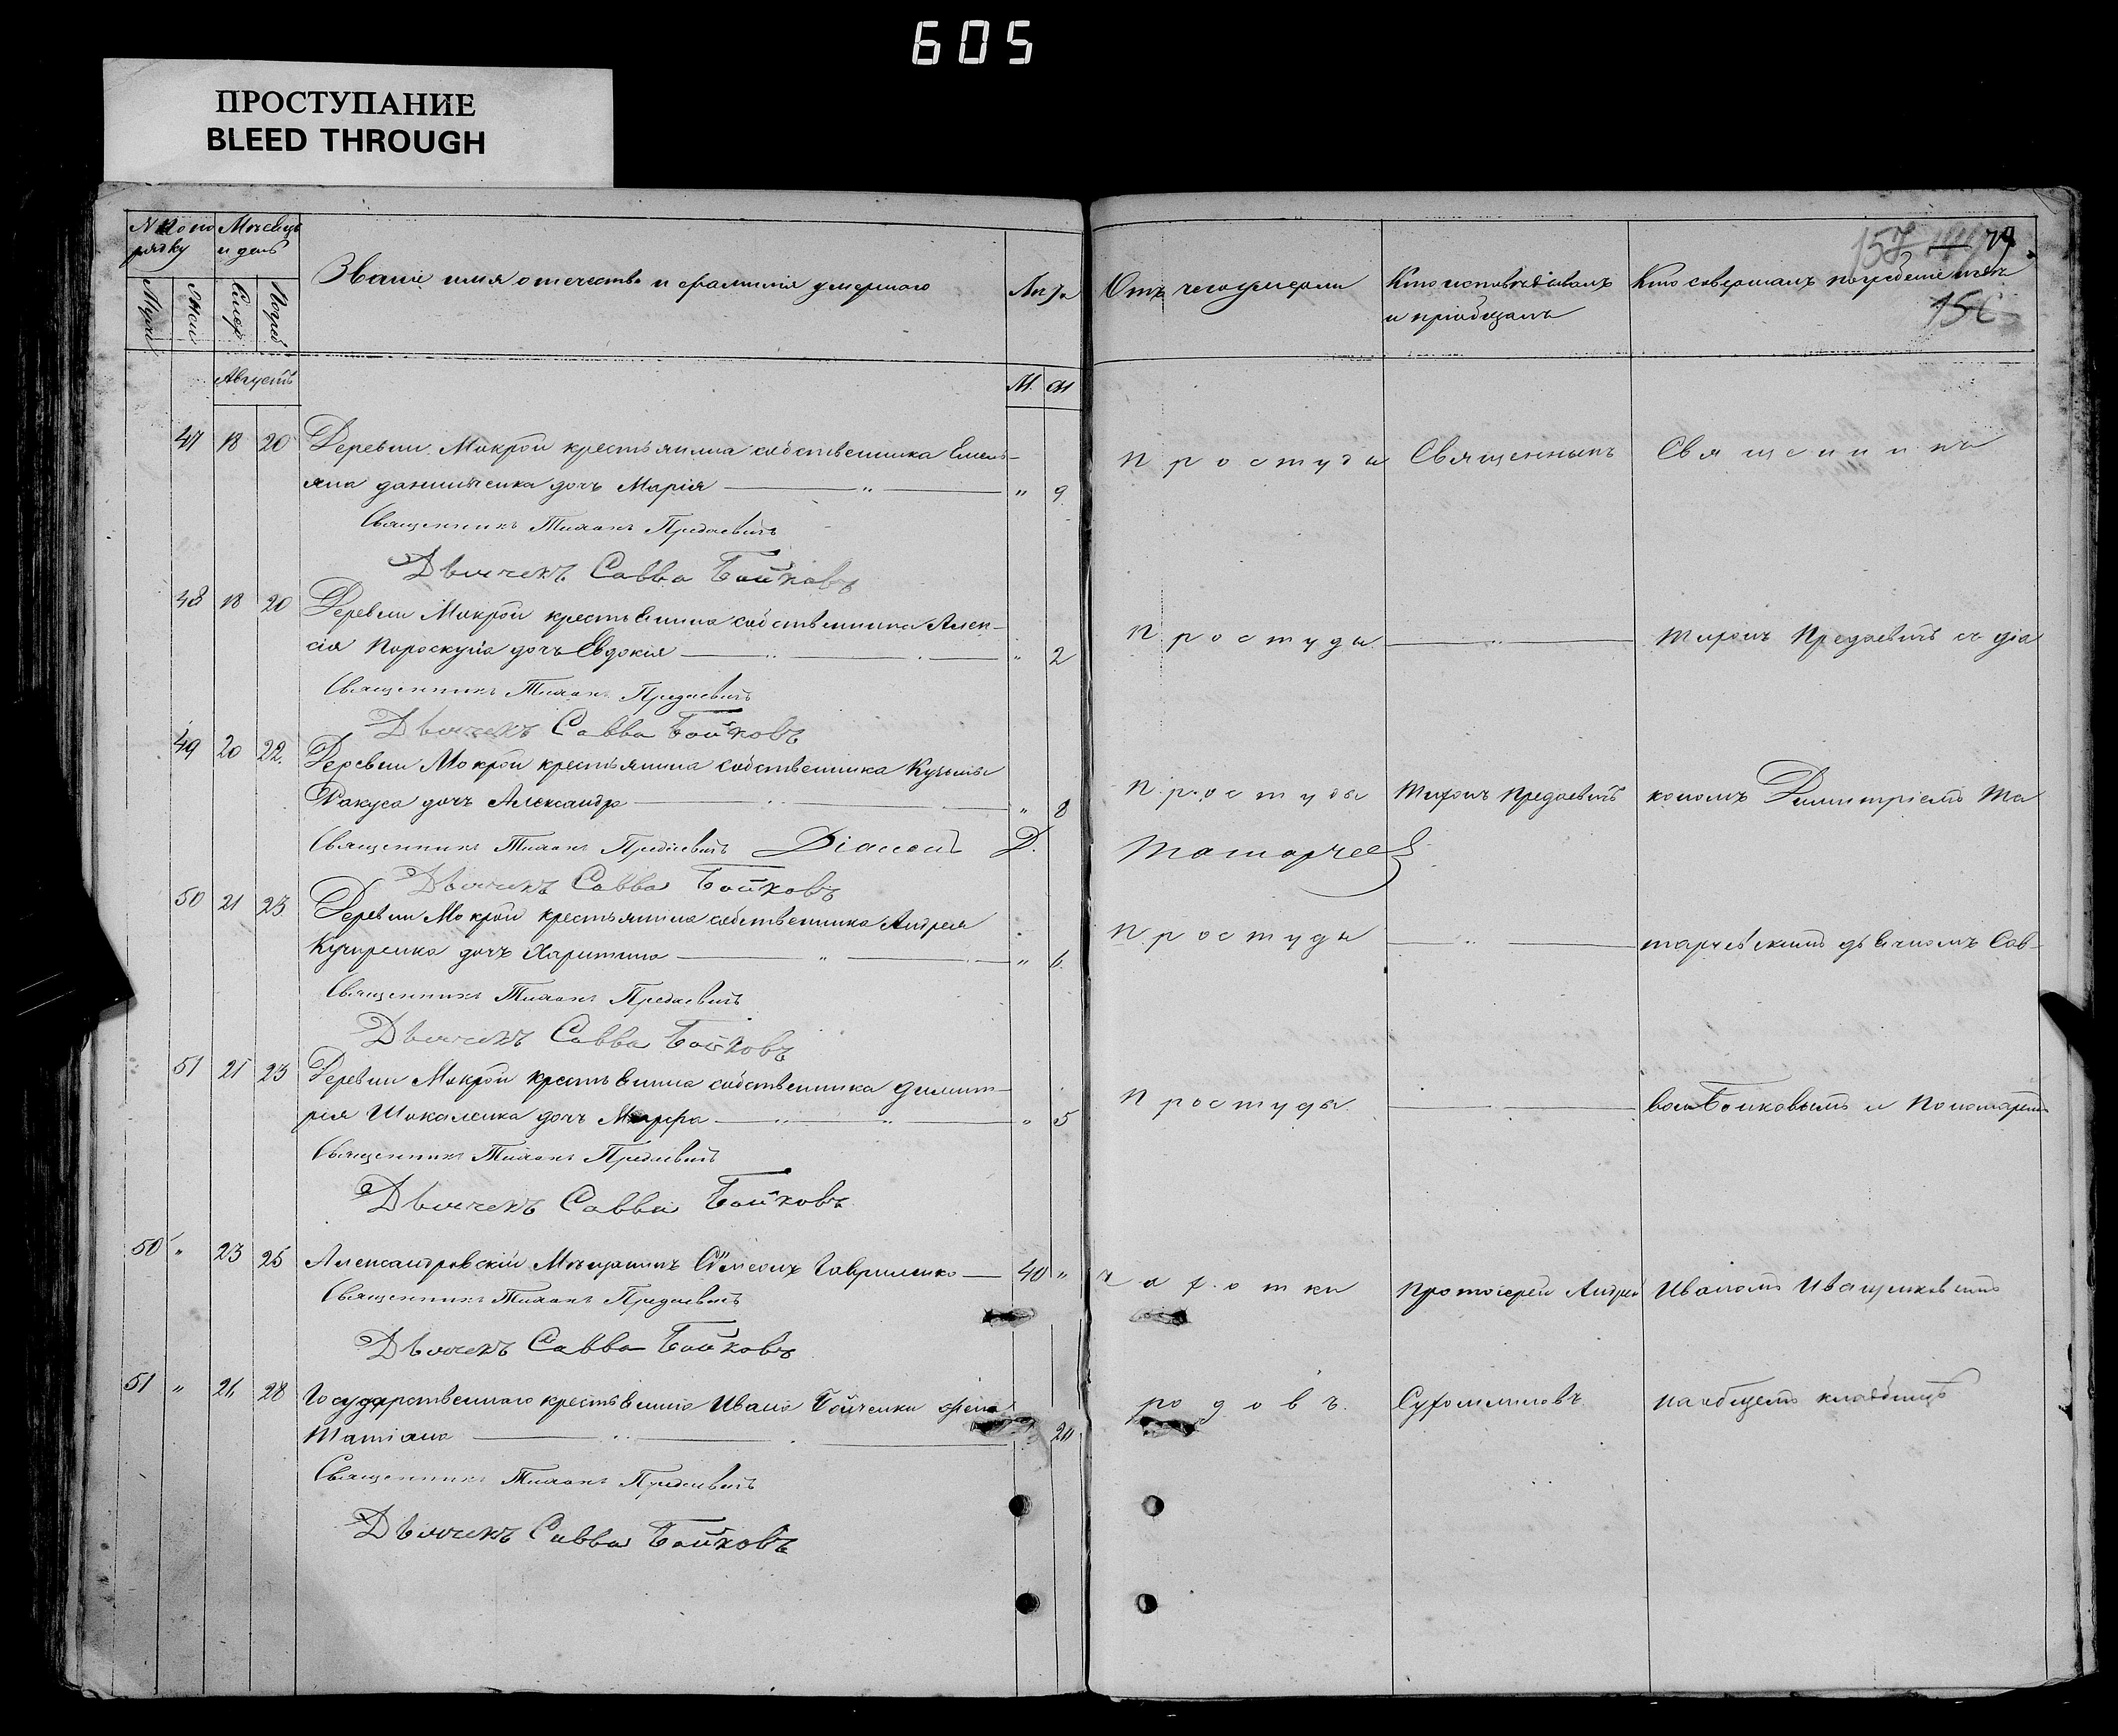 605
ПРОСТУПАНИЕ
BLEED THROUGH
№№ по по Месяцъ
рядку и день
Званіе имя отечество и фамилія умершаго
Лѣта
Августъ
М. Ж
47 18 20 Деревни Мокрой крестьянина собственника Емель-
яна Данильченка дочь Марія — " — " 9
Священникъ Тихонъ Предаевичъ
Дьячекъ Савва Бойковъ
48 18 20 Деревни Мокрой крестьянина собственника Алек-
сія дочь Евдокія — " — " 2
Священникъ Тихонъ Предаевичъ
Дьячекъ Савва Бойковъ
49 20 22. Деревни Мокрой крестьянина собственника Кузьмы
дочь Александра — " 8
Священникъ Тихонъ Предаевичъ Діаконъ Д.
Дьячекъ Савва Бойковъ
50 21 23 Деревни Мокрой крестьянина собственника Андрея
Кучиренка дочь Харитина — " — " 6
Священникъ Тихонъ Предаевичъ
Дьячекъ Савва Бойковъ
51 21 23 Деревни Мокрой крестьянина собственника Димит-
рія Шокаленка дочь Марфа — " — " 5
Священникъ Тихонъ Предаевичъ
Дьячекъ Савва Бойковъ
50 " 23 25 Александровскій Мѣщанинъ Сѵмеонъ Гавриленко — 40 "
Священникъ Тихонъ Предаевичъ
Дьячекъ Савва Бойковъ
51 " 26 28 Государственнаго крестьянина Ивана Бойченки жена
Татіана — 20
Священникъ Тихонъ Предаевичъ
Дьячекъ Савва Бойковъ
157 79
Отъ чего умерли
Кто исповѣдывалъ
и пріобщалъ
Кто совершалъ погребеніе и гдѣ
156
Простуды Священникъ Священникъ
Простуды — " — Тихонъ Предаевичъ съ діа
Простуды Тихонъ Предаевичъ кономъ Димитріемъ Та
Татарчев
Простуды — " — тарчевскимъ дьячкомъ Сав-
Простуды — вою Бойковымъ и Пономаремъ
чахотки Протоіерей Андрей Иваномъ Иващенковымъ
родовъ. Сухомлиновъ на общемъ кладбищѣ